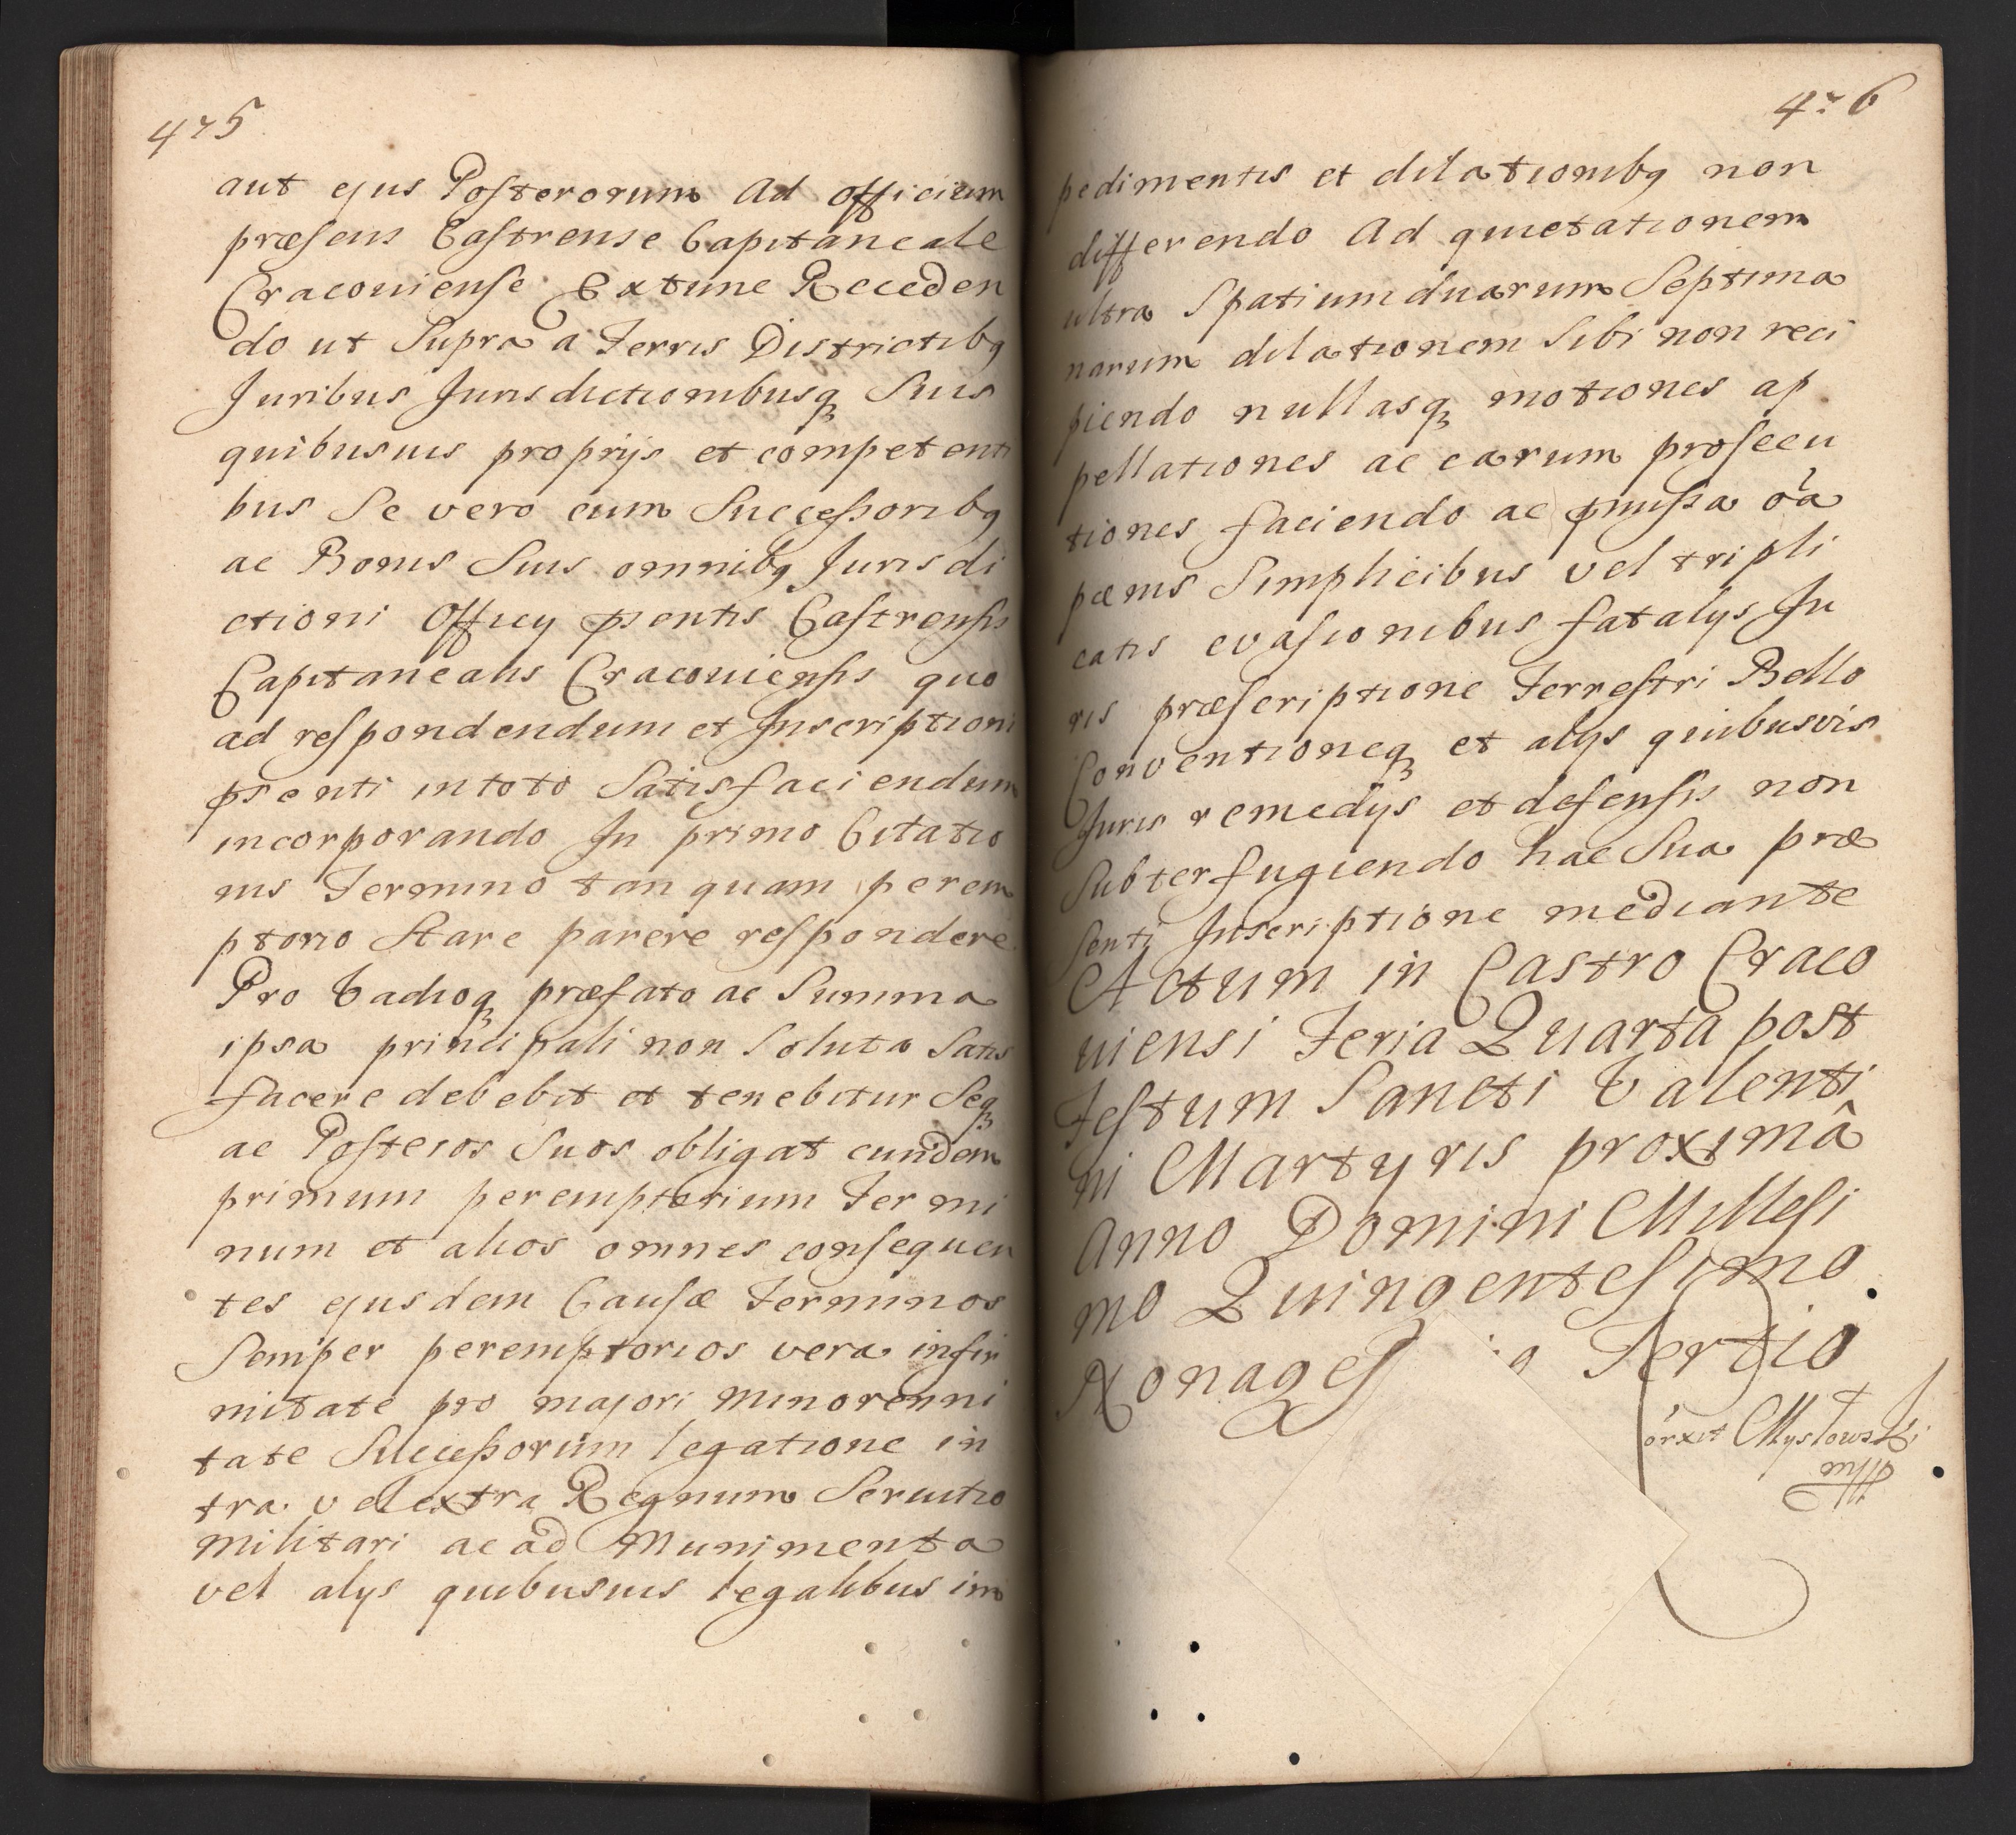 475
aut ejus Posterorum Ad Officium
præsens Castrense Capitaneale
Cracoviense Extunc Receden
do ut Supra a Terris Districtibq
Juribus Jurisdictionibusq Suis
quibusuis proprijs et competenti
bus Se vero cum Successoribq
ac Bonis Suis omnibq Jurisdi
ctioni Officy psentis Castrensis
Capitanealis Cracouiensis quo
ad respondendum et Inscriptioni
psenti in toto Satisfaciendum
incorporando In primo Citatio
nis Termino tanquam perem
ptorio Stare parere respondere
Pro Vadioq præfato ac Summa
ipsa principali non Soluta Satis
facere debebit et tenebitur Seq
ac Posteros Suos obligat eundem
primum peremptorium Termi
num et alios omnes consequen
tes ejusdem Causæ Terminos
Semper peremptorios vera infir
mitate pro majori minorenni
tate Successorum legatione in
tra vel extra Regnum Seruitio
Militari ac ad Munimenta
vel alys quibusuis legalibus im
476
pedimentis et dilationibq non
differendo Ad quietationem
ultra Spatium duarum Septima
narum dilationem Sibi non reci
piendo nullasq motiones ap
pellationes ac earum prosecu
tiones faciendo ac pmissa oa
pænis Simplicibus vel tripli
catis evasionibus fatalys Ju
ris præscriptione Terrestri Bello
Conventioneq et alys quibusvis
Juris remedys et defensis non
Subterfugiendo hac Sua præ
senti Inscriptione mediante
Actum in Castro Craco
uiensi Feria Quarta post
Festum Sancti Valenti
ni Martyris proximâ
Anno Domini Millesi
mo Quingentesimo
Nonages o Tertio
Myslowski